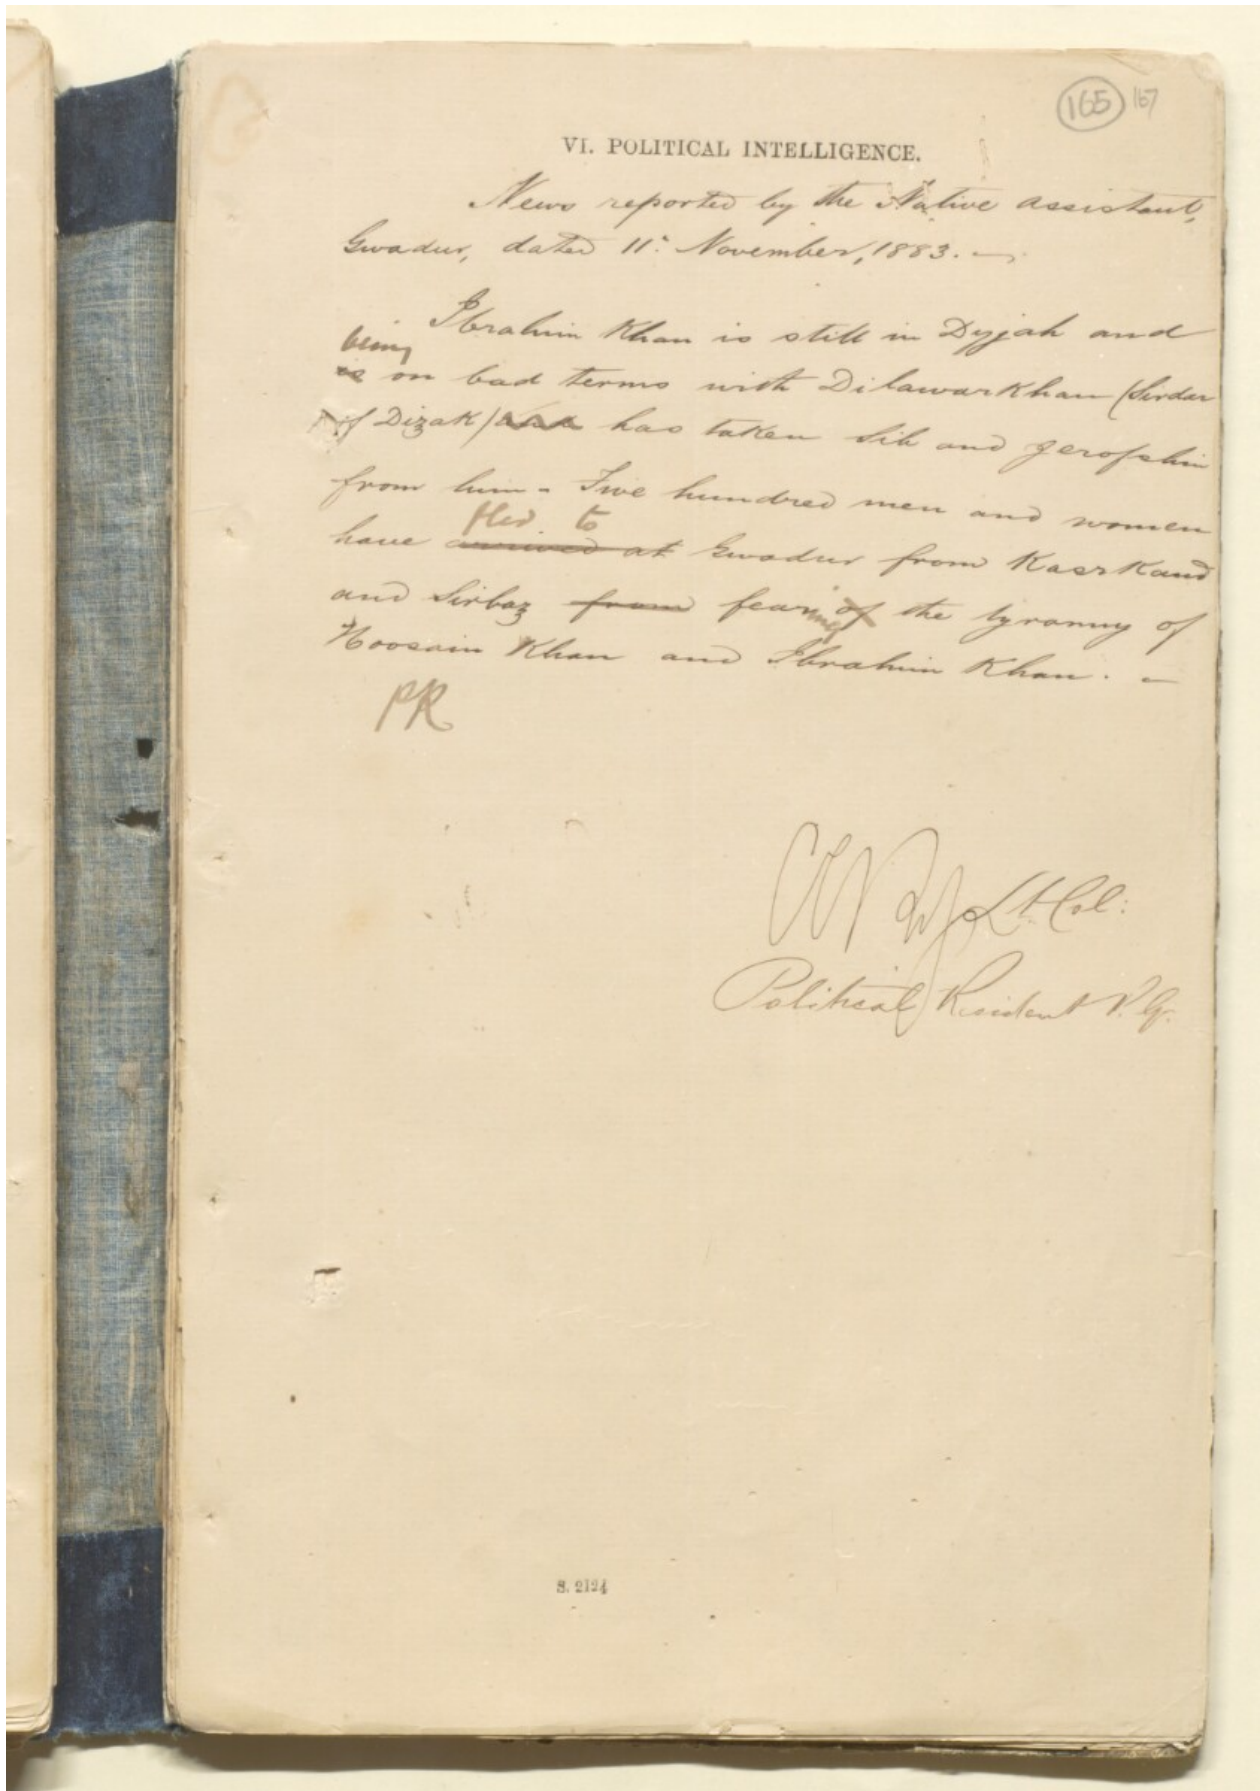 165 167
VI. POLITICAL INTELLIGENCE.
News reported by the Native Assistant,
Gwadur, dated 11th November, 1883. —
Ibrahim Khan is still in Dyjah and
being
is on bad terms with Dilawar Khan (Sirdar
of Dizak) and has taken Sib and
from him - Five hundred men and women
fled to
have arrived at Gwadur from Kasrkand
and Sirbaz from fearing of the tyranny of
Hoosain Khan and Ibrahim Khan. —
PR
Lt. Col:
Political Resident P. G.
S. 2124